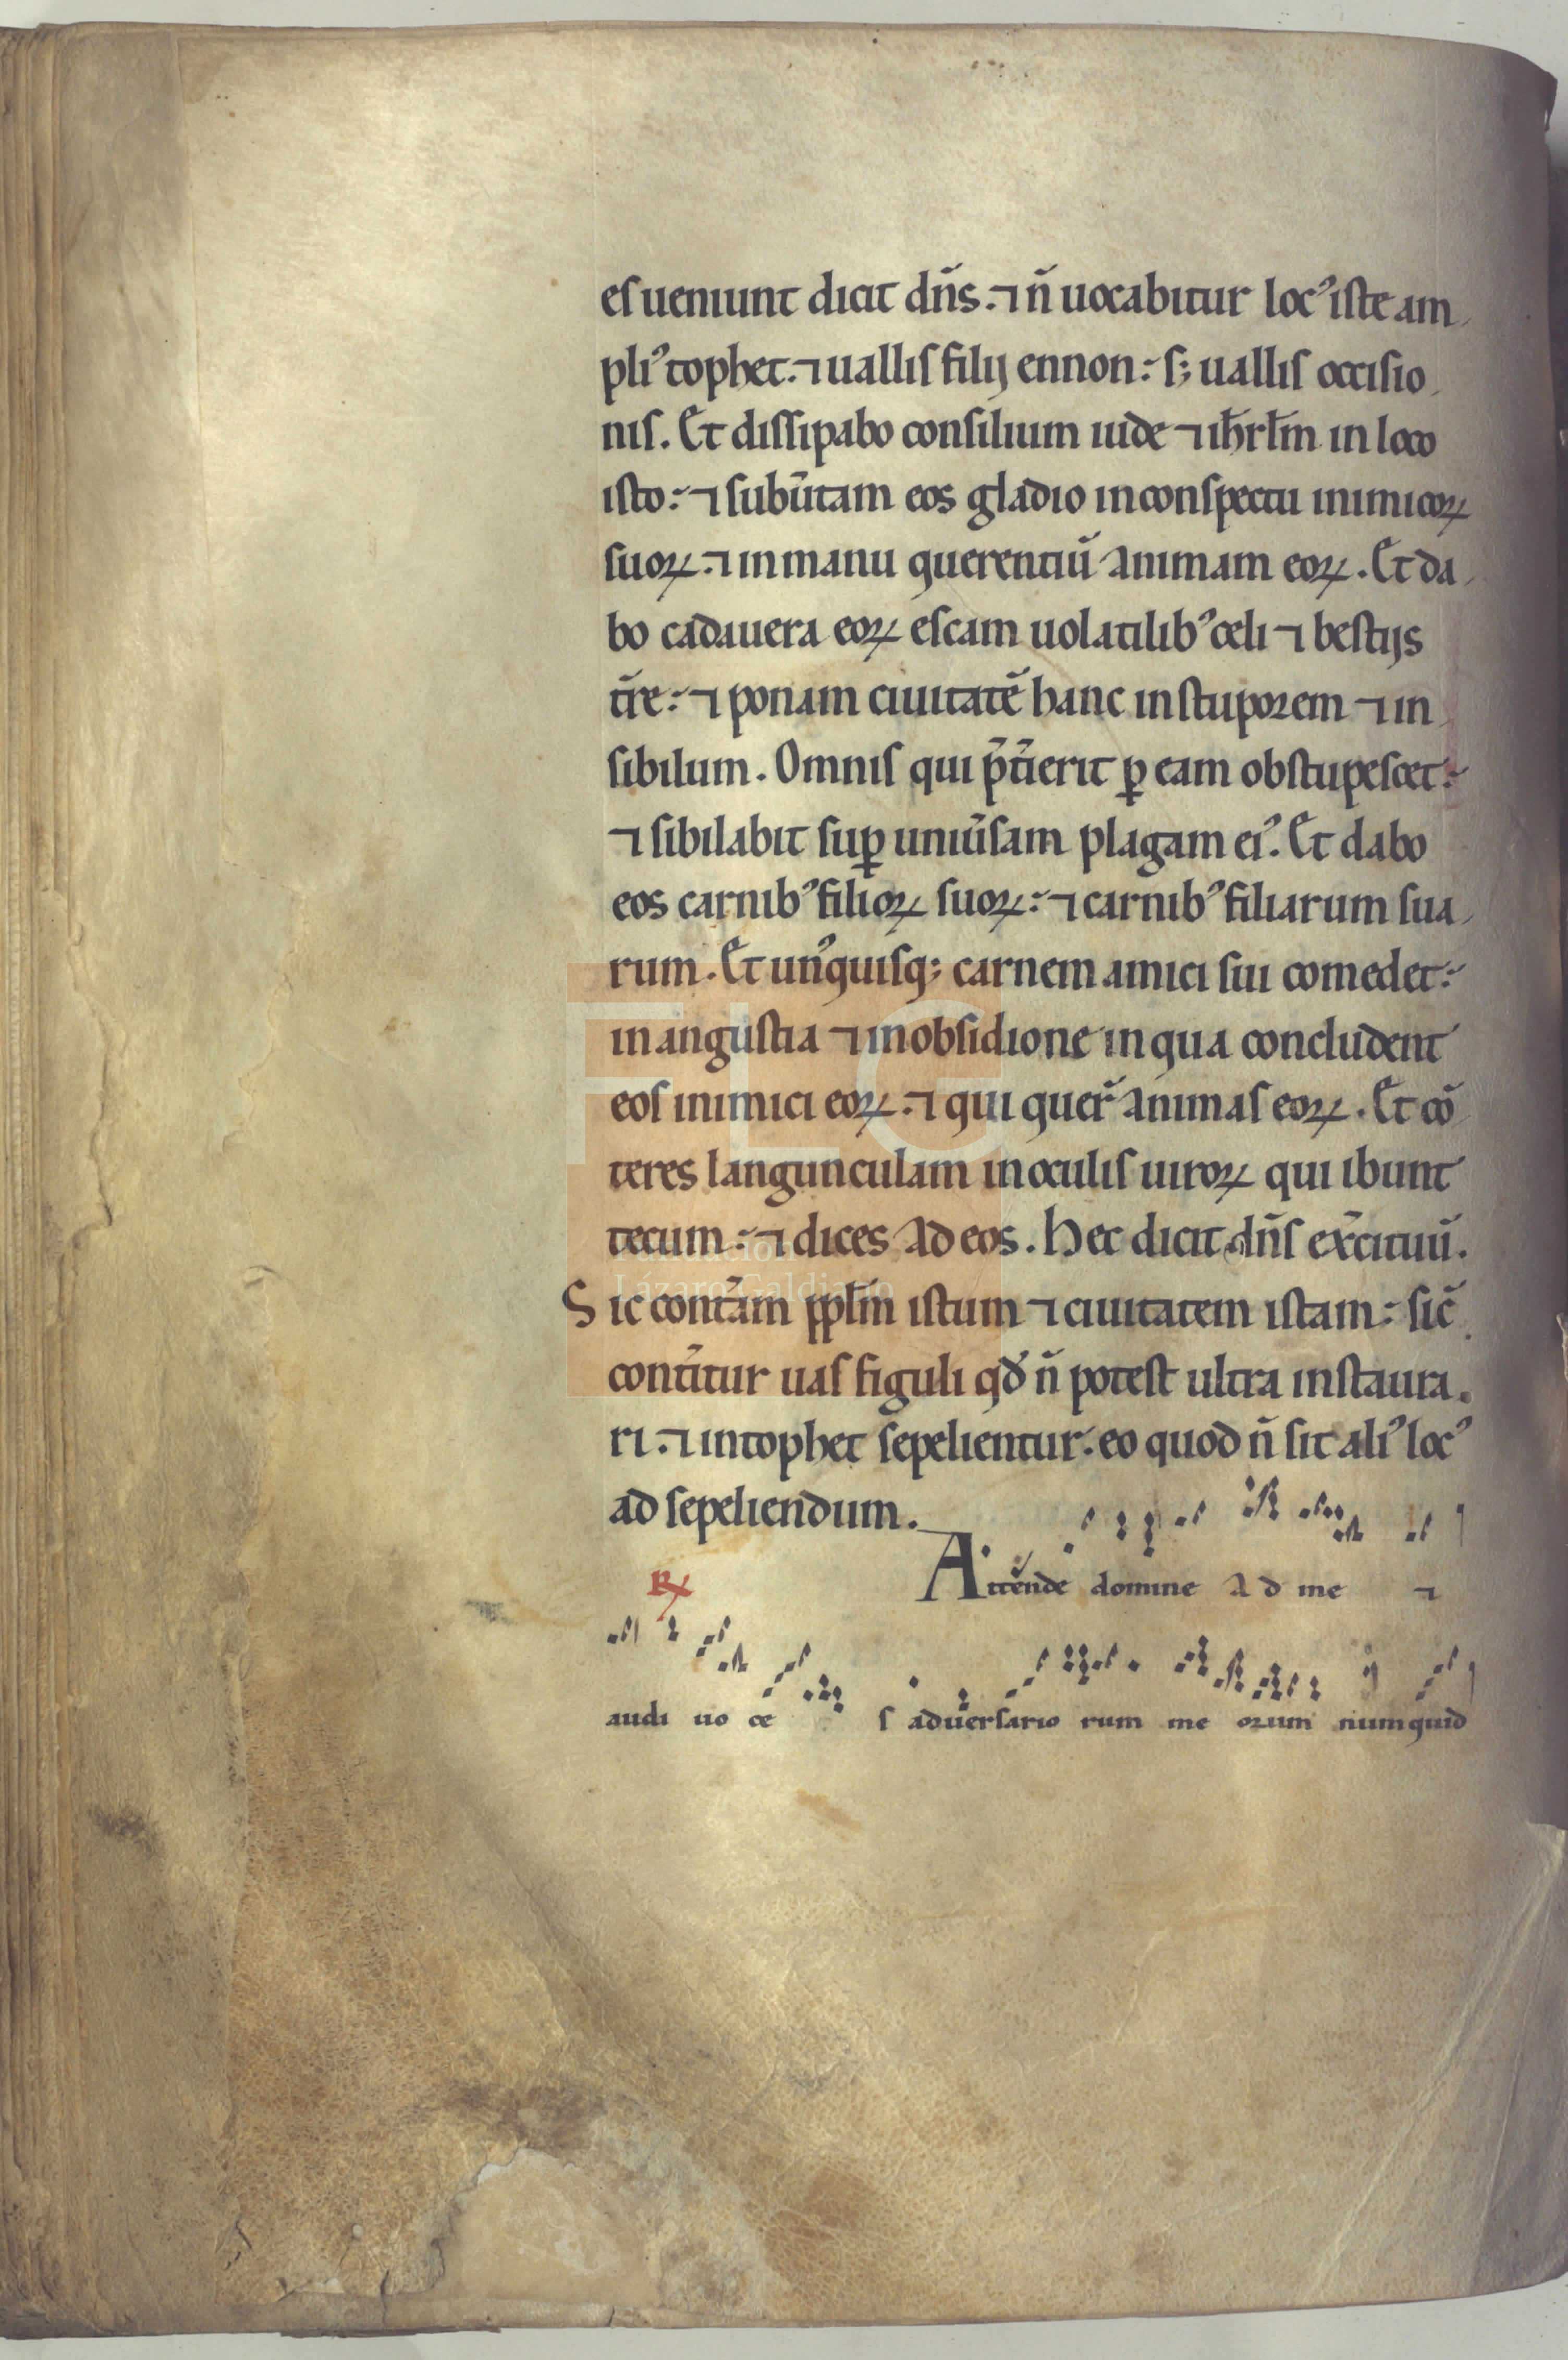 es ueniunt dicit dñs. ⁊ ñ uocabitur locꝰ iste am
pliꝰ tophet. ⁊ uallis filij ennon: sꝫ uallis occisio
nis. Et dissipabo consilium iude ⁊ ihrl̃m in loco
isto: ⁊ subũtam eos gladio in conspectu inimicoꝝ
suoꝝ. ⁊ in manu querentiũ animam eoꝝ. Et da
bo cadauera eoꝝ escam uolatilibꝰ celi ⁊ bestijs
t̃re: ⁊ ponam ciuitatẽ hanc in stuporem ⁊ in
sibilum. Omnis qui p̃t̃ierit ꝑ eam obstupescet:
⁊ sibilabit suꝑ uniũsam plagam eiꝰ. Et dabo
eos carnibꝰ filioꝝ suoꝝ: ⁊ carnibꝰ filiarum sua
rum. Et unꝰquisqꝫ carnem amici sui comedet:
in angustia ⁊ in obsidione in qua concludent
eos inimici eoꝝ. ⁊ qui quer̃ animas eoꝝ. Et cõ
teres langunculam in oculis uiroꝝ qui ibunt
tecum: ⁊ dices ad eos. Hec dicit dñs ex̃cituũ.
Sic cont̃am ppl̃m istum ⁊ ciuitatem istam: sic̃
cont̃itur uas figuli qd̃ ñ potest ultra instaura
ri. ⁊ in tophet sepelientur. eo quod ñ sit aliꝰ locꝰ
ad sepeliendum.
℞ Attẽnde domine ad me ⁊
audi uo ce s aduersario rum me orum numquid
Lázaro Galdiano
FLG